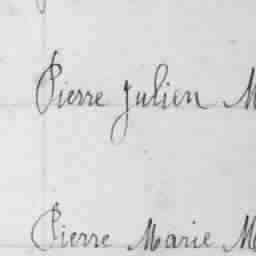 Pierre Julien M
Pierre Marie M